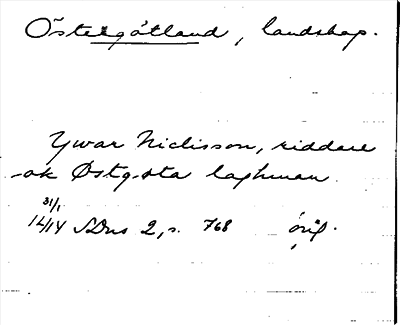 Östergötland, landskap.
Ywar Niclisson, riddare
ok Østgøta laghman
31/1
1414 SDns 2, s. 768 orig.